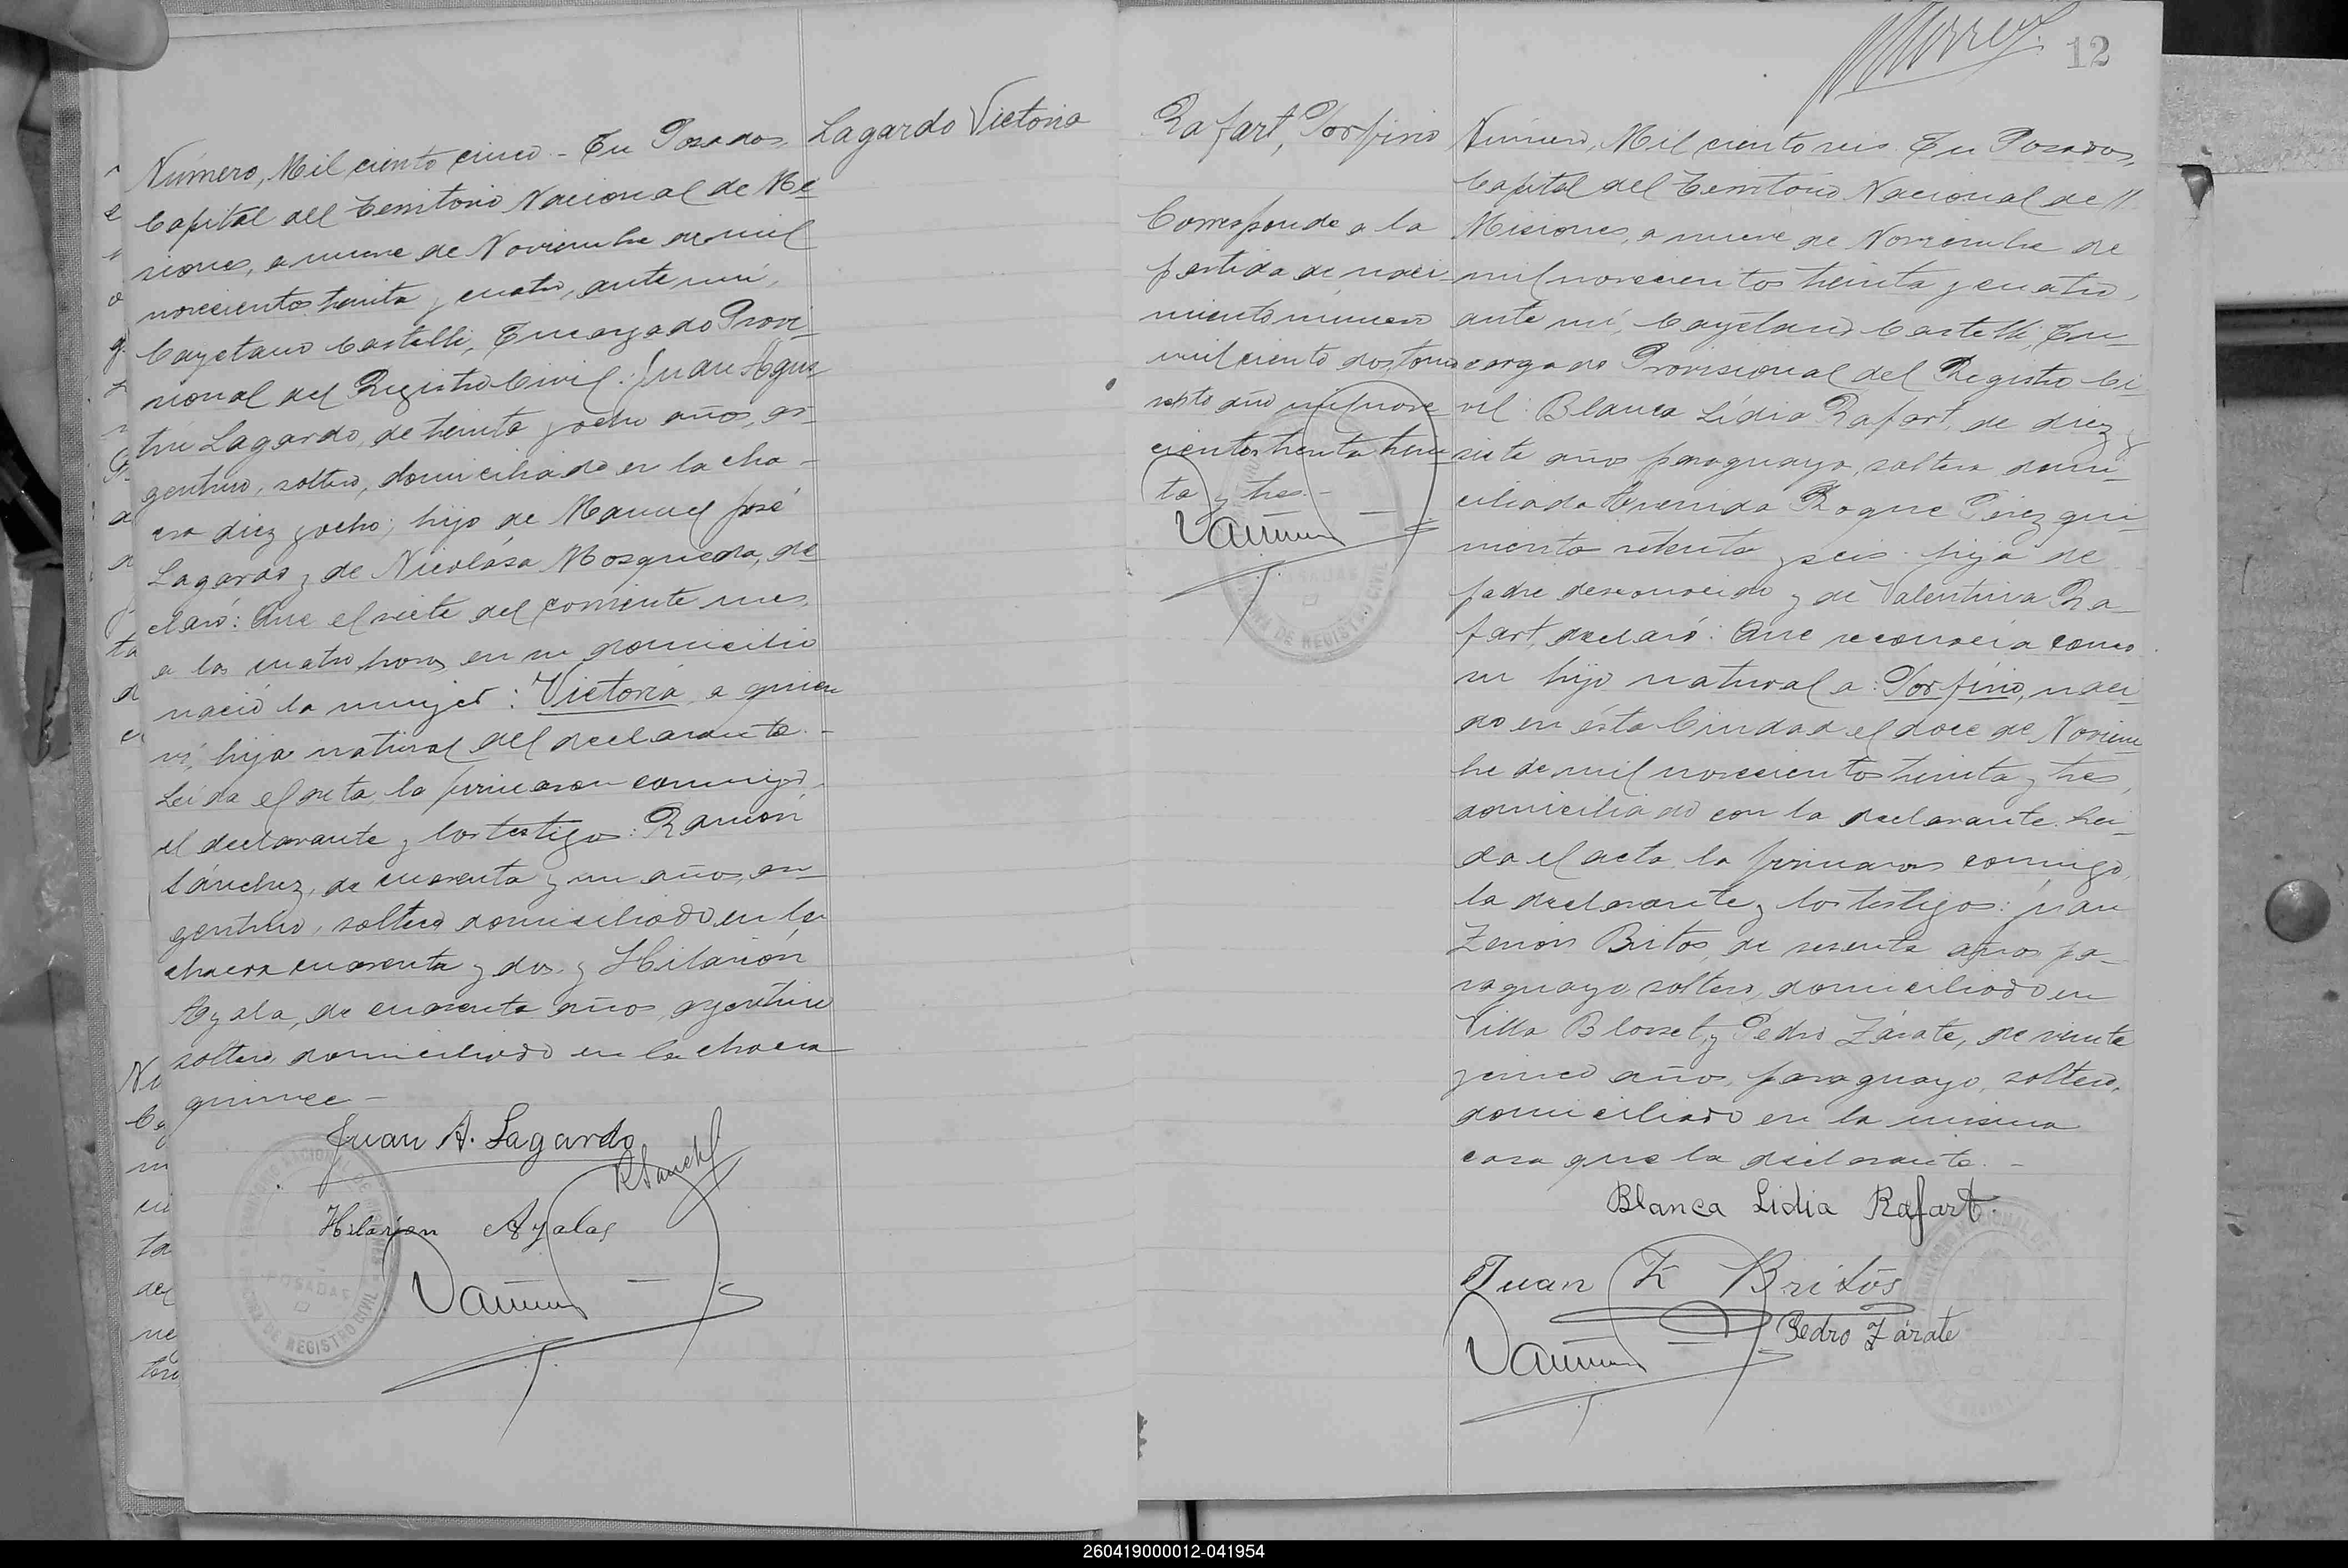 Lagardo Victoria
Número, Mil ciento cinco - En Posadas,
Capital del Territorio Nacional de Mi
siones, a nueve de Noviembre de mil
novecientos treinta y cuatro, ante mí,
Cayetano Castelli, Encargado Provi-
sional del Registro Civil: Juan Agus-
tín Lagardo, de treinta y ocho años, ar-
gentino, soltero, domiciliado en la cha-
cra diez y ocho; hijo de Manuel José
Lagardo y de Nicolása Mosqueda, de
claró: Que el siete del corriente mes,
a las cuatro horas, en su domicilio
nació la mujer: Victoria, a quien
ví, hija natural del declarante. -
Leída el acta, la firmaron conmigo
el declarante y los testigos: Ramón
Sánchez, de cuarenta y un años, ar-
gentino, soltero domiciliado en la
chacra cuarenta y dos y Hilarión
Ayala, de cuarenta años, argentino
soltero, domiciliado en la chacra
quince -
Juan A. Lagardo
R Sanchez
Hilarion Ayalas
TERRITORIO NACIONAL DE MISIONES
POSADAS
OFICINA DE REGISTRO CIVIL
12
Rafart, Porfirio
Corresponde a la
partida de naci-
miento número
mil ciento dos, tomo
sesto año mil nove
cientos treinta trein
ta y tres. -
POSADAS
OFICINA DE REGISTRO CIVIL
Número, Mil ciento seis. En Posadas,
Capital del Territorio Nacional de
Misiones, a nueve de Noviembre de
mil novecientos treinta y cuatro,
ante mí, Cayetano Castelli En-
cargado Provisional del Registro Ci-
vil: Blanca Lídia Rafart, de diez y
siete años paraguaya, soltera domi-
ciliada Avenida Roque Pérez qui-
nientos setenta y seis. hija de
padre desconocido y de Valentina Ra-
fart, declaró: Que reconocía como
su hijo natural a: Porfirio, naci-
do en ésta Ciudad el doce de Noviem
bre de mil novecientos treinta y tres,
domiciliado con la declarante. Leí-
da el acta, la firmaron conmigo,
la declarante y los testigos: Juan
Zenón Britos, de sesenta años pa-
raguayo soltero, domiciliado en
Villa Blosset, y Pedro Zárate, de veinte
y cinco años, paraguayo, soltero,
domiciliado en la misma
casa que la declarante. -
Blanca Lidia Rafart.
Juan Z Britos
Pedro Zárate
260419000012-041954